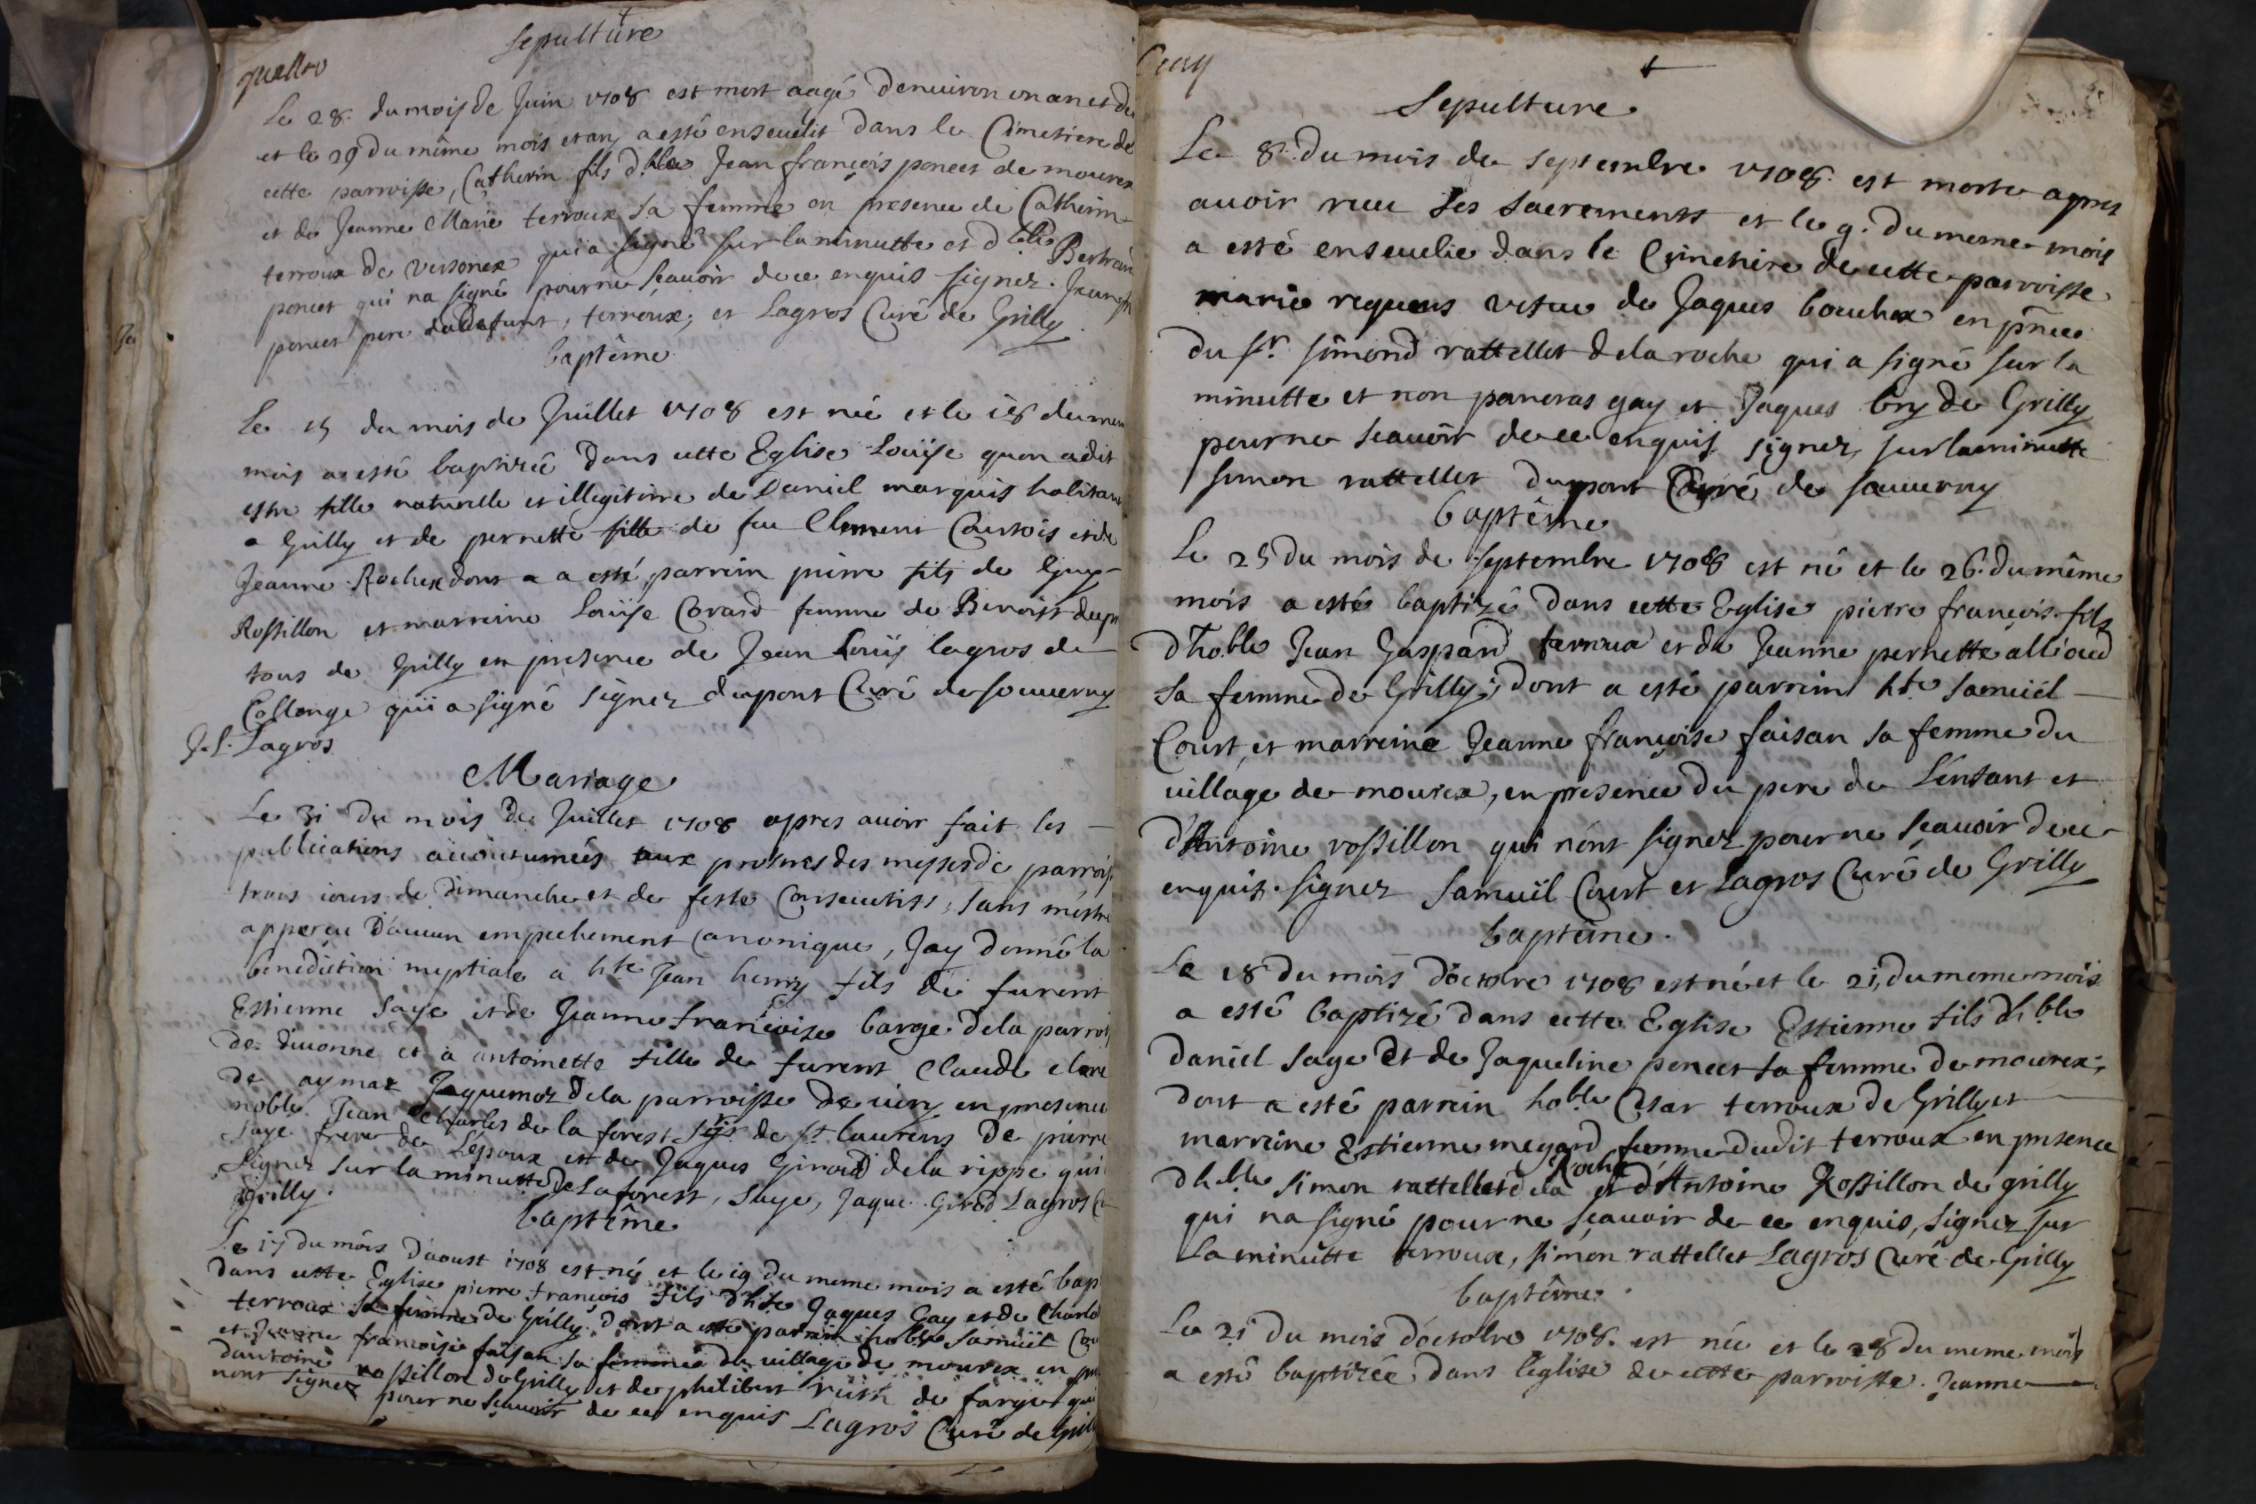 quattro
Sepulture
Le 28. du mois de Juin 1708 est mort aagé d'enuiron un an et de
et le 29 du même mois et an, a esté enseuelit dans le Cimetiere de
cette parroisse, Catherin fils d'hble Jean françois poncet de mourex
et de Jeanne Marie terroux sa femme en presence de Catherin
terroux de vesonex qui a signé sur la minutte et d'hble Bertrand
poncet qui na signé pour ne scauoir de ce enquis signez. Jean fr
poncet pere du defunt, terroux, et Lagros Curé de Grilly
baptême
Le 15 du mois de Juillet 1708 est née et le 18 du mem
mois a esté baptizée dans cette Eglise Loüyse qu'on a dit
estre fille naturelle et illegitime de Daniel marquis habitant
a Grilly et de pernette fille de feu Clement Courtois et de
Jeanne Rochex dont a a esté parrein pierre fils de Guy
Rossillon et marreine Loüyse Covard femme de Benoist dup
tous de Grilly en presence de Jean Loüys lagros de
Collonge qui a signé signez dupont Curé de sauuerny
J. L. Lagros
Mariage
Le 31 du mois de Juillet 1708 apres auoir fait les
publications accoutumées aux prosnes des messes de parrois
trois iours de dimanche et de feste consecutifs, sans m'estre
apperçu d'aucun empechement canonique, J'ay donné la
benediction nuptiale a hte Jean henry fils de furent
Estienne Saye et de Jeanne françoise barge de la parrois
de diuonne et à antoinette fille de furent Claude
de aymaz Jaquemoz de la parroisse de en presence
noble Jean Charles de la forest Sgr de st laurens de pierre
Saye frere de L'epoux et de Jaques Giroud de la rippe qui
signez sur la minutte De Laforest, Saye, Jaque Girod Lagros C
Grilly.
baptême
Le 17 du mois d'aoust 1708 est né et le 19 du meme mois a esté bap
dans cette Eglise pierre françois fils d'hte Jaques Gay et de Charlo
terroux sa femme de Grilly, dont a esté parrein hoble Samuiël Cou
et Jeanne françoise faisan sa femme du village de mourex en pre
d'antoine rossillon de Grilly et de philibert ruis de farges qui
n'ont signez pour ne scauoir de ce enquis Lagros Curé de Gril
Cinq
Sepulture
Le 8. du mois de septembre 1708. est morte apres
auoir receu ses sacrements et le 9. du meme mois
a esté enseuelie dans le Cimetiere de cette parroisse
marie requens vefue de Jaques bouchex en pñce
du sr. simond rattellet de la roche qui a signé sur la
minutte et non pancras gay et Jaques bry de Grilly
pour ne scauoir de ce enquis signez, sur la minutte
simon rattellet dupont Curé de sauuerny
baptême
Le 25 du mois de septembre 1708 est né et le 26. du même
mois a esté baptizé dans cette Eglise pierre françois fils
d'hoble Jean Gaspard terroux et de Jeanne pernette allioud
sa femme de Grilly; dont a esté parrein hte Samuiël
Court, et marreine Jeanne françoise faisan sa femme du
village de mourex, en presence du pere de L'enfant et
d'Antoine rossillon qui n'ont signez pour ne scauoir de ce
enquis. signez Samuïl Court et Lagros Curé de Grilly
baptême.
Le 18 du mois d'octobre 1708 est né et le 21, du meme mois
a esté baptizé dans cette Eglise Estienne fils d'hble
daniel Sage et de Jaqueline poncet sa femme de mourex;
dont a esté parrein hoble Cesar terroux de Grilly et
marreine Estienne megard femme dudit terroux en presence
d'hble simon rattellet de la Roche et d'Antoine Rossillon de grilly
qui na signé pour ne scauoir de ce enquis, signez sur
la minutte terroux, simon rattellet Lagros Curé de Grilly
baptême.
Le 21 du mois d'octobre 1708. est née et le 28 du meme mois
a esté baptizée dans l'église de cette parroisse. Jeanne